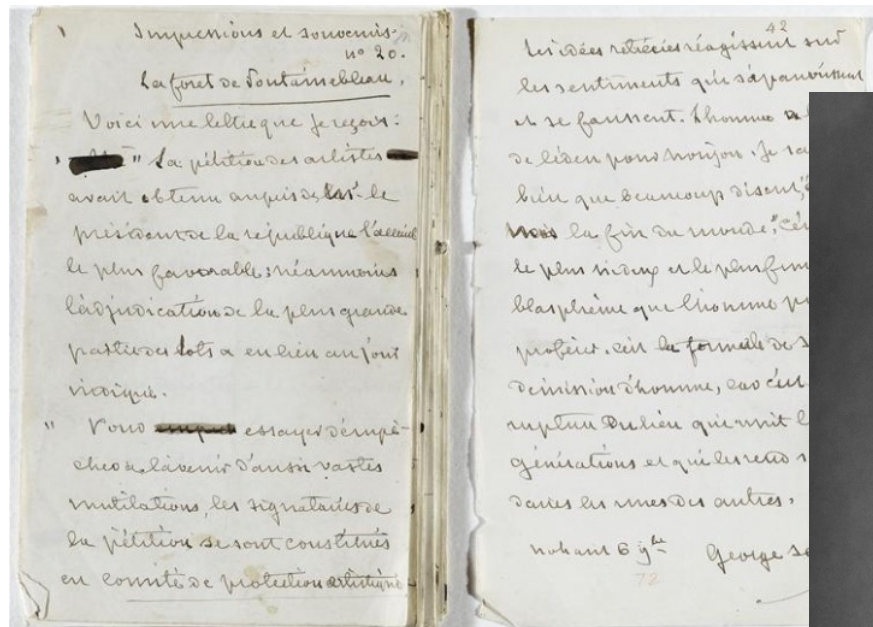 Impressions et souvenirs.
n° 20.
La foret de Fontainebleau.
Voici une lettre que je reçois :
" La pétition des artistes
avait obtenu auprès de Mr le
président de la république l'accueil
le plus favorable ; néanmoins
l'adjudication de la plus grande
partie des lots a eu lieu au jour
indiqué.
" Pour essayer d'empê-
cher à l'avenir d'aussi vastes
mutilations, les signataires de
la pétition se sont constitués
en comité de protection artistique
42
Les idées rétrécies réagissent sur
les sentiments qui s'apauvrissent
et se faussent. L'homme a
de l'éden pour horizon. Je sa
bien que beaucoup disent, "
nous la fin du monde." C'es
le plus hideux et le plus fune
blasphème que l'homme pu
proférer. C'est la formule de s
démission d'homme, car c'est
rupture du lien qui unit l
générations et qui les rend s
daires les unes des autres.
nohant 6 9bre
George Sa
72